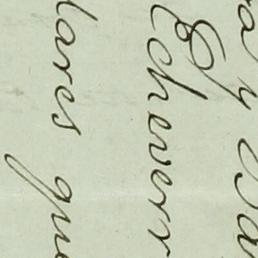 a y
Echeverr
lares que